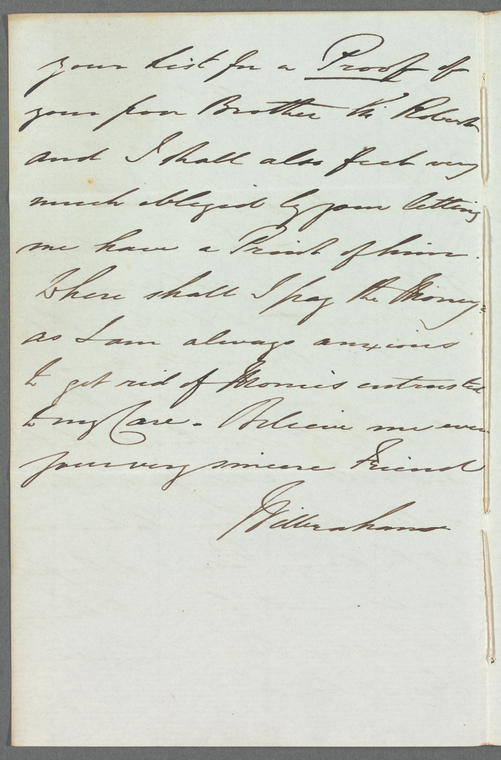 your List for a Proof of
your poor Brother Sir Robert
and I shall also feel very
much obliged by your letting
me have a Print of him.
Where shall I pay the Money,
as I am always anxious
to get rid of Monies entrusted
to my Care. Believe me ever
your very sincere Friend
Wilbraham